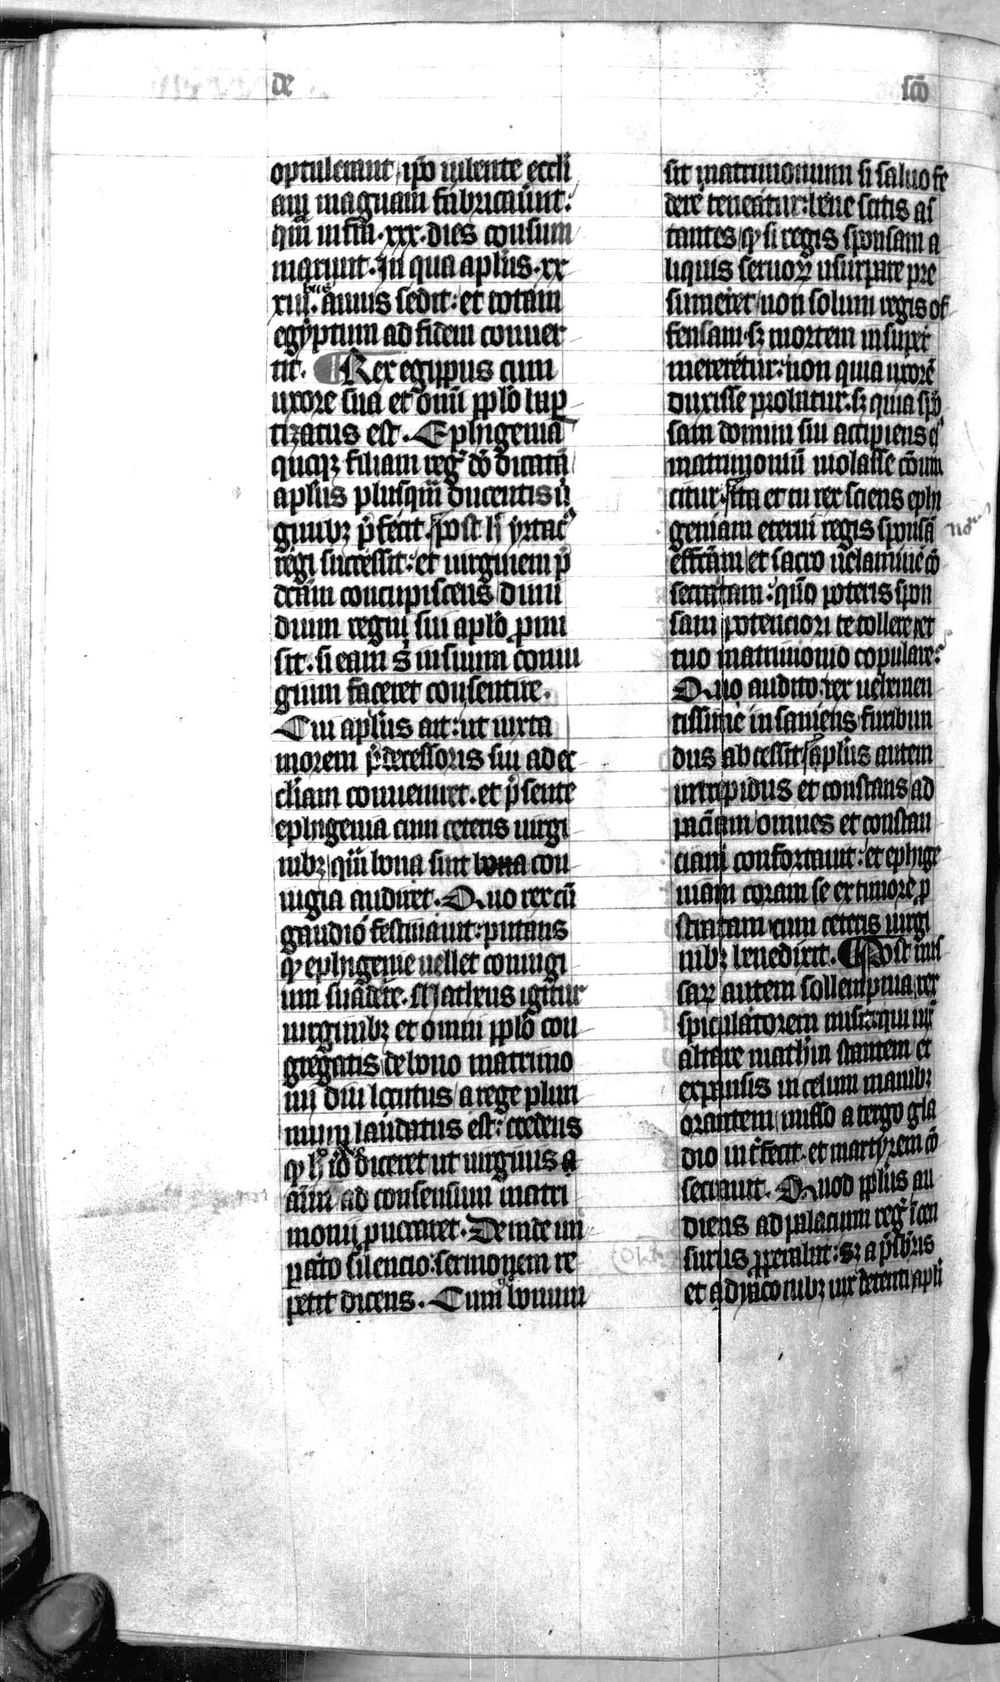 de
scō
optulerant ip̄o iubente eccl̄i
am magnam fabricauert͛.
quā infra .xxx. dies consum
marunt. In qua apl̄us .xx
xiij.bus annis sedit. et totam
egyptum ad fidem conuer
tit. Rex egyppus cum
uxore sua et om̄i pp̄lo bap
tizatus est. Ephigenia
quoqꝫ filiam reg̾ dō dicatā
apl̄us plusqm̄ ducentis uͥ
ginibꝫ p̄fecit. post h̄ yrtac̾
regi successit. et uirginem p̄
dc̄am concupiscens dimi
dium regni sui apl̄o ꝓmi
sit. si eam s̾ in suum coniu
gium faceret consentire.
Cui apl̄us ait. ut iuxta
morem p̄decessoris sui ad ec
cl̄iam conueniret. et p̄sente
ephigenia cum ceteris uirgi
nibꝫ qm̄ bona sint bona con
iugia audiret. Quo rex cū
gaudio festinauit. putans
qꝫ ephigenie uellet coniugi
um suadere. Matheus igitur
uirginibꝫ et omni pp̄lo con
gregatis de bono matrimo
nij diu locutus a rege pluri
mum laudatus est. credens
qꝫ h̾ iō diceret ut uirginis a
nīm ad consensum matri
monij ꝓuocaret. Deinde im
perato silencio. sermonem re
petit dicens. Cum bonum
sit matrimonium si saluo fe
dere teneatur. bene scitis as
tantes qꝫ si regis sponsam a
liquis seruoꝝ usurpare pre
sumeret non solum regis of
fensam. sꝫ mortem insuper
mereretur. non quia uxorē
duxisse probatur. sꝫ quia spō
sam domini sui accipiens ei̾
matrimoniū uiolasse cōuin
citur. Ita et tu rex sciens ephi
geniam eterni regis sponsā
effc̄am et sacro uelamine cō
secratam. quō poteris spon
sam potencioris te tollere et
tuo matrimonio copulare.
Quo audito. rex uehemen
tissime insaniens furibun
dus abcessit. apl̄us autem
intrepidus et constans ad
paciam omnes et constan
ciam confortauit. et ephige
niam coram se ex timore ꝓ
stratam cum ceteris uirgi
nibꝫ benedixit. Post mis
saꝝ autem sollempnia rex
spiculatorem misit. qui iux̾
altare math̾m stantem et
expansis in celum manibꝫ
orantem misso a tergo gla
dio int̾fecit. et martyrem cō
secrauit. Quod pp̄lus au
diens ad palacium reg̾ īcen
surus ꝓperabat. sꝫ a p̄sbr̄is
et adyaconibꝫ uix detenti apl̄i